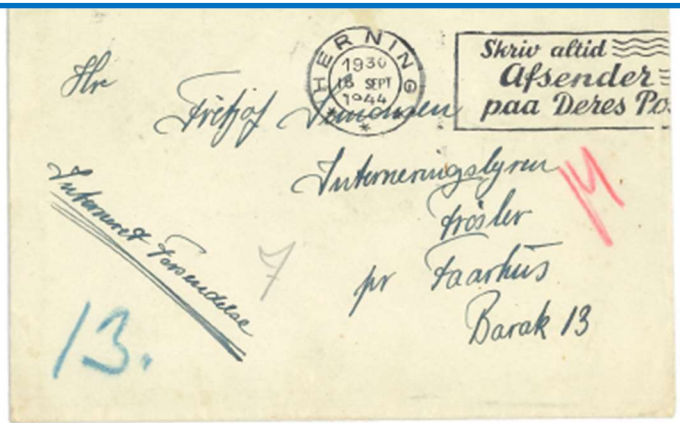 HERNING
1930
18 SEPT
1944
Skriv altid
Afsender
paa Deres Po
Hr
Fritjof
Interneringslejren
Frøslev
pr Faarhus
Barak 13
Interneret Forsendelse
7
13.
M